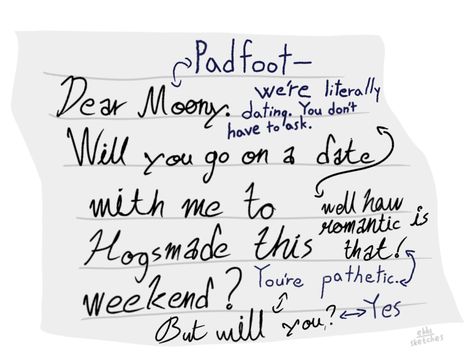 Padfoot—
Dear Moony. We're literally
dating. You don't
have to ask.
Will you go on a date
with me to
well how
romantic is
that!
Hogsmade this
weekend? You're pathetic.
But will you? Yes
ebby
sketches